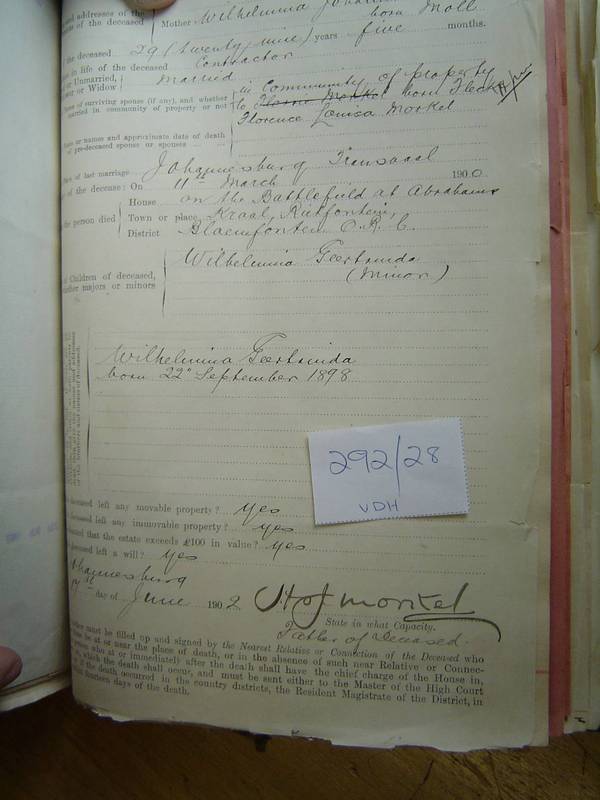 and addresses of the
of the deceased
Mother Wilhelmina
born Moll
the deceased 29 (twenty nine) years five months.
in life of the deceased Contractor
or Unmarried, Married
or Widow
of surviving spouse (if any), and whether in Community of property
married in community of property or not to Morkel born
Florence Louisa Morkel
or names and approximate date of death
of pre-deceased spouse or spouses
of last marriage Johannesburg Transvaal
of the decease: On 11th March 1900
House on the Battlefield at Abrahams
the person died Town or place Kraal, Rietfontein,
District Bloemfontein O.R.C.
Wilhelmina Geertruida
(Minor)
of Children of deceased,
whether majors or minors
Wilhelmina Geertruida
born 22nd September 1898
292/28
VDH
deceased left any movable property? yes
deceased left any immovable property? yes
that the estate exceeds £100 in value? yes
deceased left a will? yes
Johannesburg
17th day of June 1902
Morkel
State in what Capacity.
Father of Deceased.
must be filled up and signed by the Nearest Relative or Connection of the Deceased who
be at or near the place of death, or in the absence of such near Relative or Connec-
person who at or immediately after the death shall have the chief charge of the House in,
which the death shall occur, and must be sent either to the Master of the High Court
if the death occurred in the country districts, the Resident Magistrate of the District, in
fourteen days of the death.